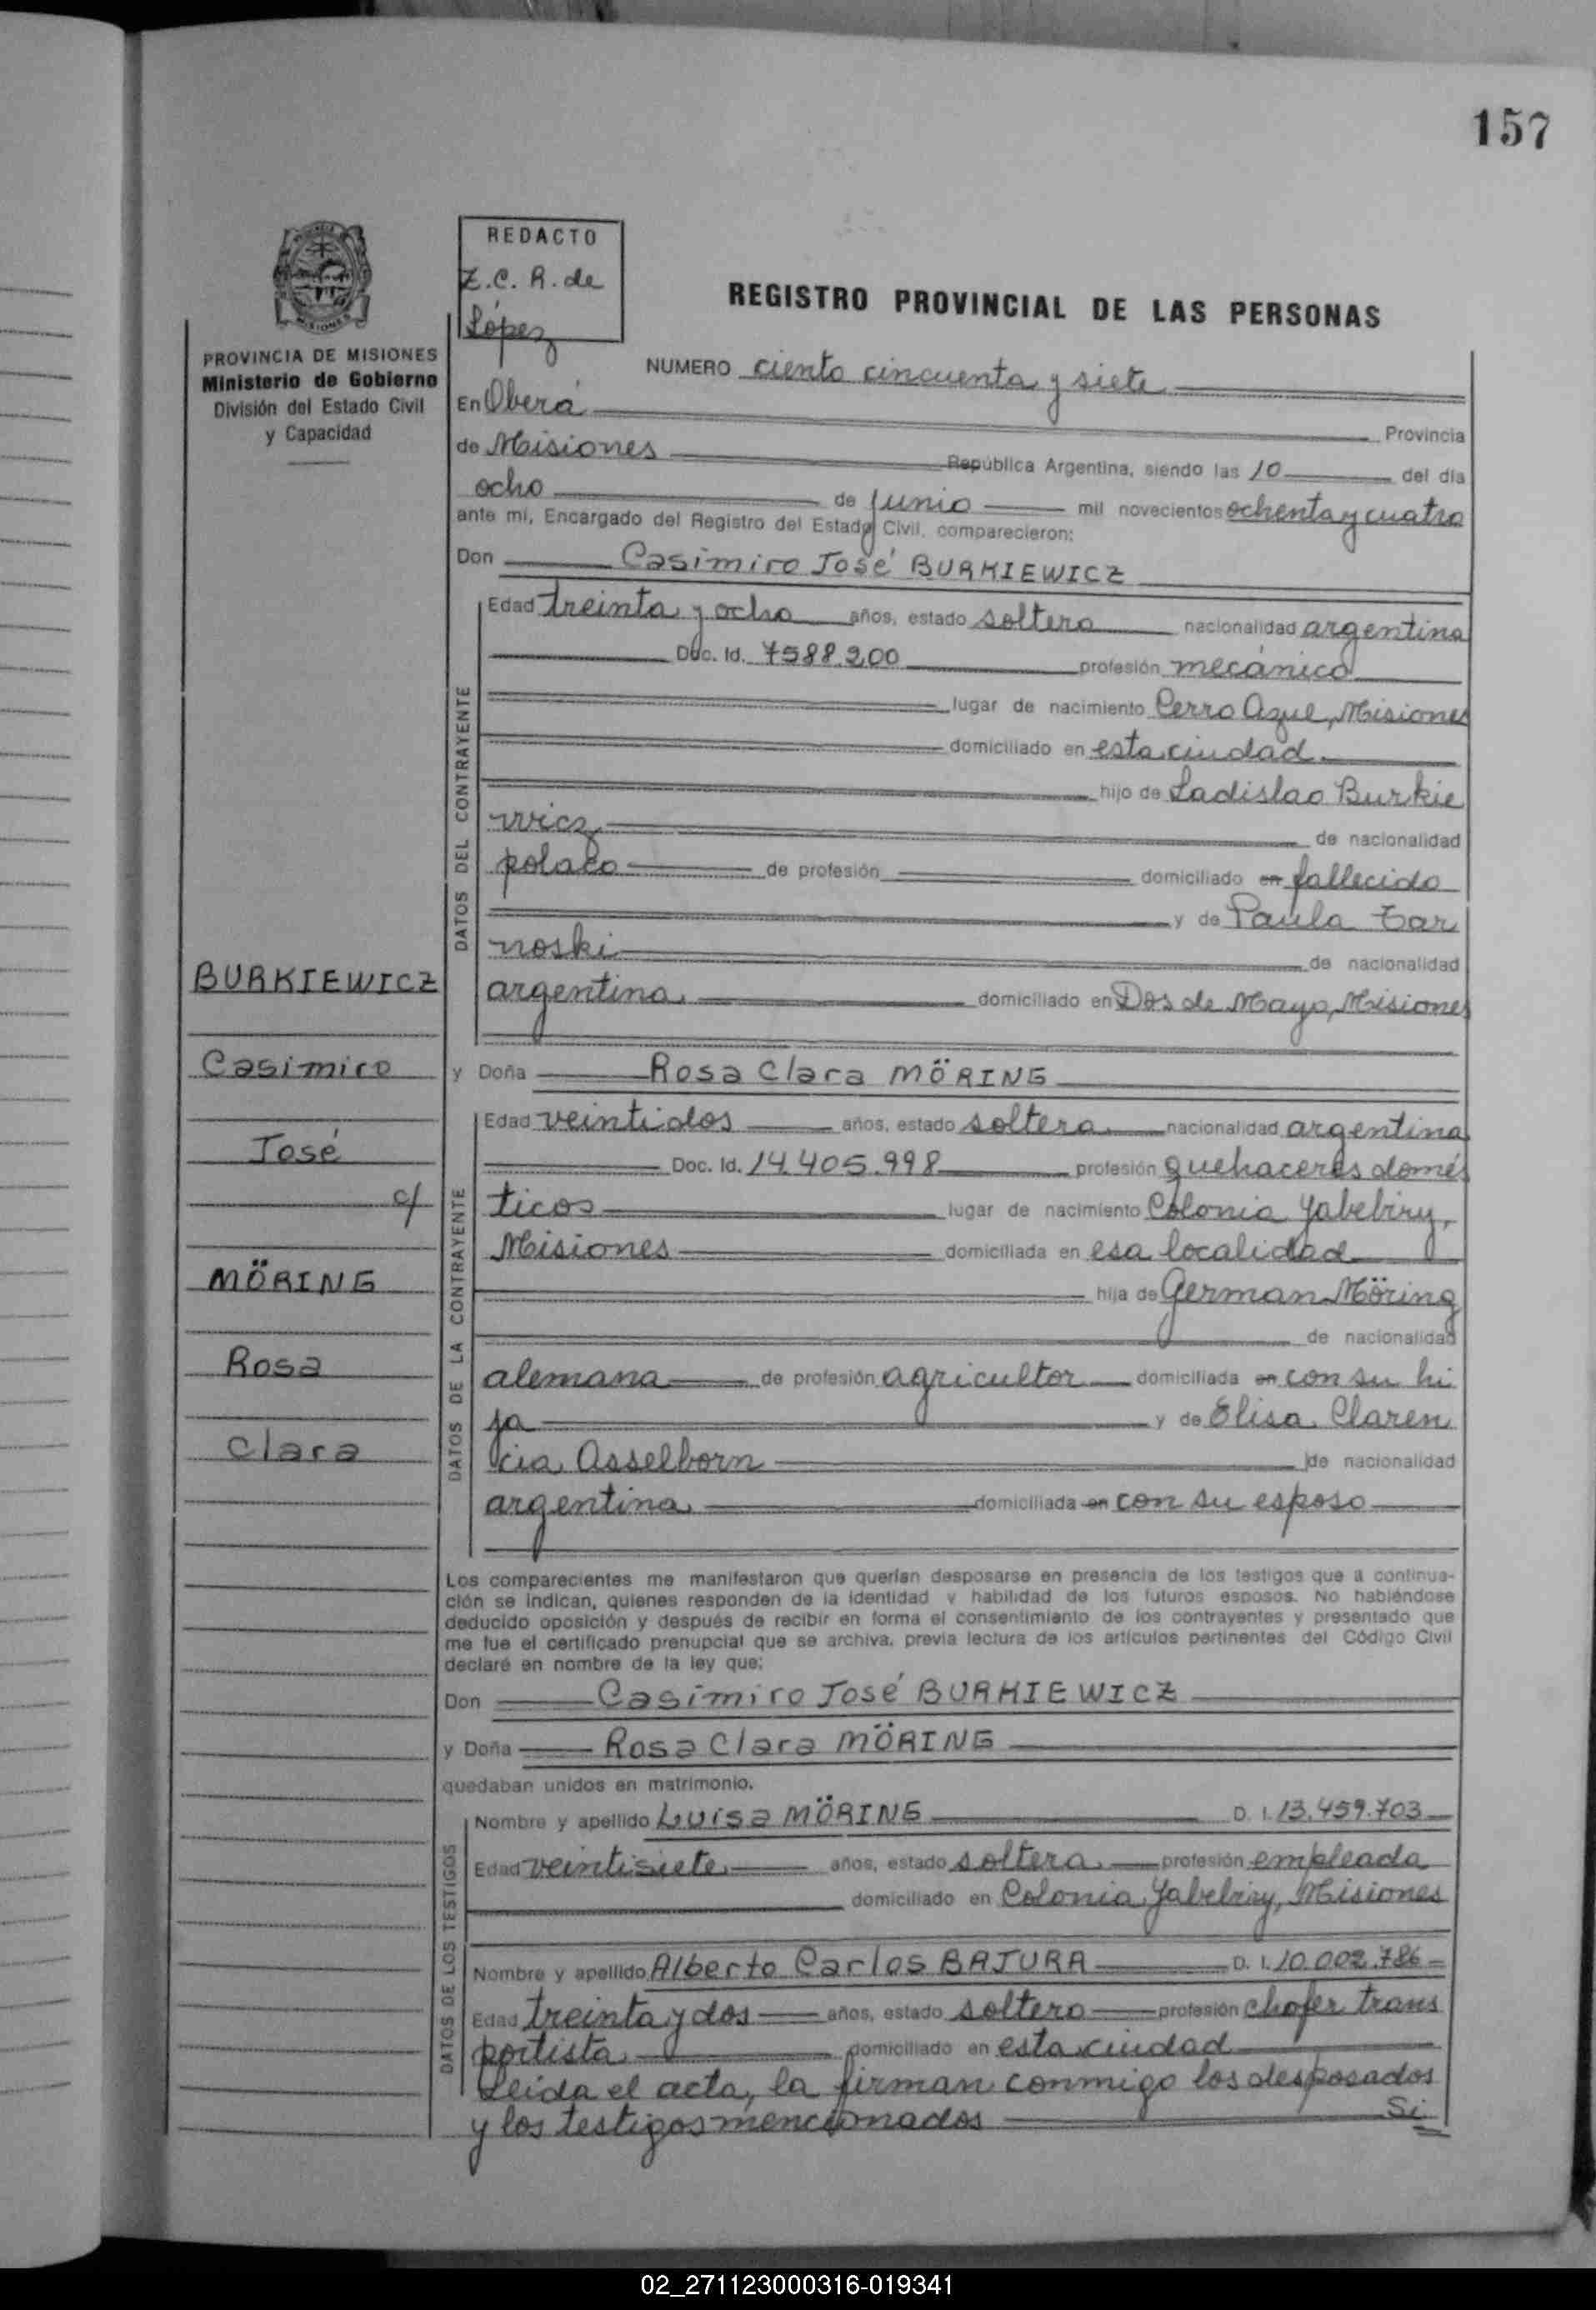 157
REDACTO
Z.C.R. de
López
REGISTRO PROVINCIAL DE LAS PERSONAS
PROVINCIA DE MISIONES
Ministerio de Gobierno
División del Estado Civil
y Capacidad
NUMERO ciento cincuenta y siete
En Oberá Provincia
de Misiones República Argentina, siendo las 10 del día
ocho de junio mil novecientos ochenta y cuatro
ante mí, Encargado del Registro del Estado Civil, comparecieron:
Don Casimiro José BURKIEWICZ
DATOS DEL CONTRAYENTE
Edad treinta y ocho años, estado soltero nacionalidad argentina
Doc. Id. 7588.200 profesión mecánico
lugar de nacimiento Cerro Azul, Misiones
domiciliado en esta ciudad
hijo de Ladislao Burkie
wicz de nacionalidad
polaco de profesión domiciliado en fallecido
y de Paula Zar
noski de nacionalidad
argentina domiciliado en Dos de Mayo, Misiones
BURKIEWICZ
Casimiro
José
c/
MÖRING
Rosa
Clara
y Doña Rosa Clara MÖRING
DATOS DE LA CONTRAYENTE
Edad veintidos años, estado soltera nacionalidad argentina
Doc. Id. 14.405.998 profesión quehaceres domés
ticos lugar de nacimiento Colonia Yabebiry,
Misiones domiciliada en esa localidad
hija de German Möring
de nacionalidad
alemana de profesión agricultor domiciliada en con su hi
ja y de Elisa Claren
cia Asselborn de nacionalidad
argentina domiciliada en con su esposo
Los comparecientes me manifestaron que querían desposarse en presencia de los testigos que a continua-
ción se indican, quienes responden de la identidad y habilidad de los futuros esposos. No habiéndose
deducido oposición y después de recibir en forma el consentimiento de los contrayentes y presentado que
me fue el certificado prenupcial que se archiva, previa lectura de los artículos pertinentes del Código Civil
declaré en nombre de la ley que:
Don Casimiro José BURKIEWICZ
y Doña Rosa Clara MÖRING
quedaban unidos en matrimonio.
DATOS DE LOS TESTIGOS
Nombre y apellido Luisa MÖRING D. I. 13.459.703
Edad veintisiete años, estado soltera profesión empleada
domiciliado en Colonia Yabebiry, Misiones
Nombre y apellido Alberto Carlos BAJURA D. I. 10.002.786
Edad treinta y dos años, estado soltero profesión chofer trans
portista domiciliado en esta ciudad
Leida el acta, la firman conmigo los desposados
y los testigos mencionados Si
02_271123000316-019341